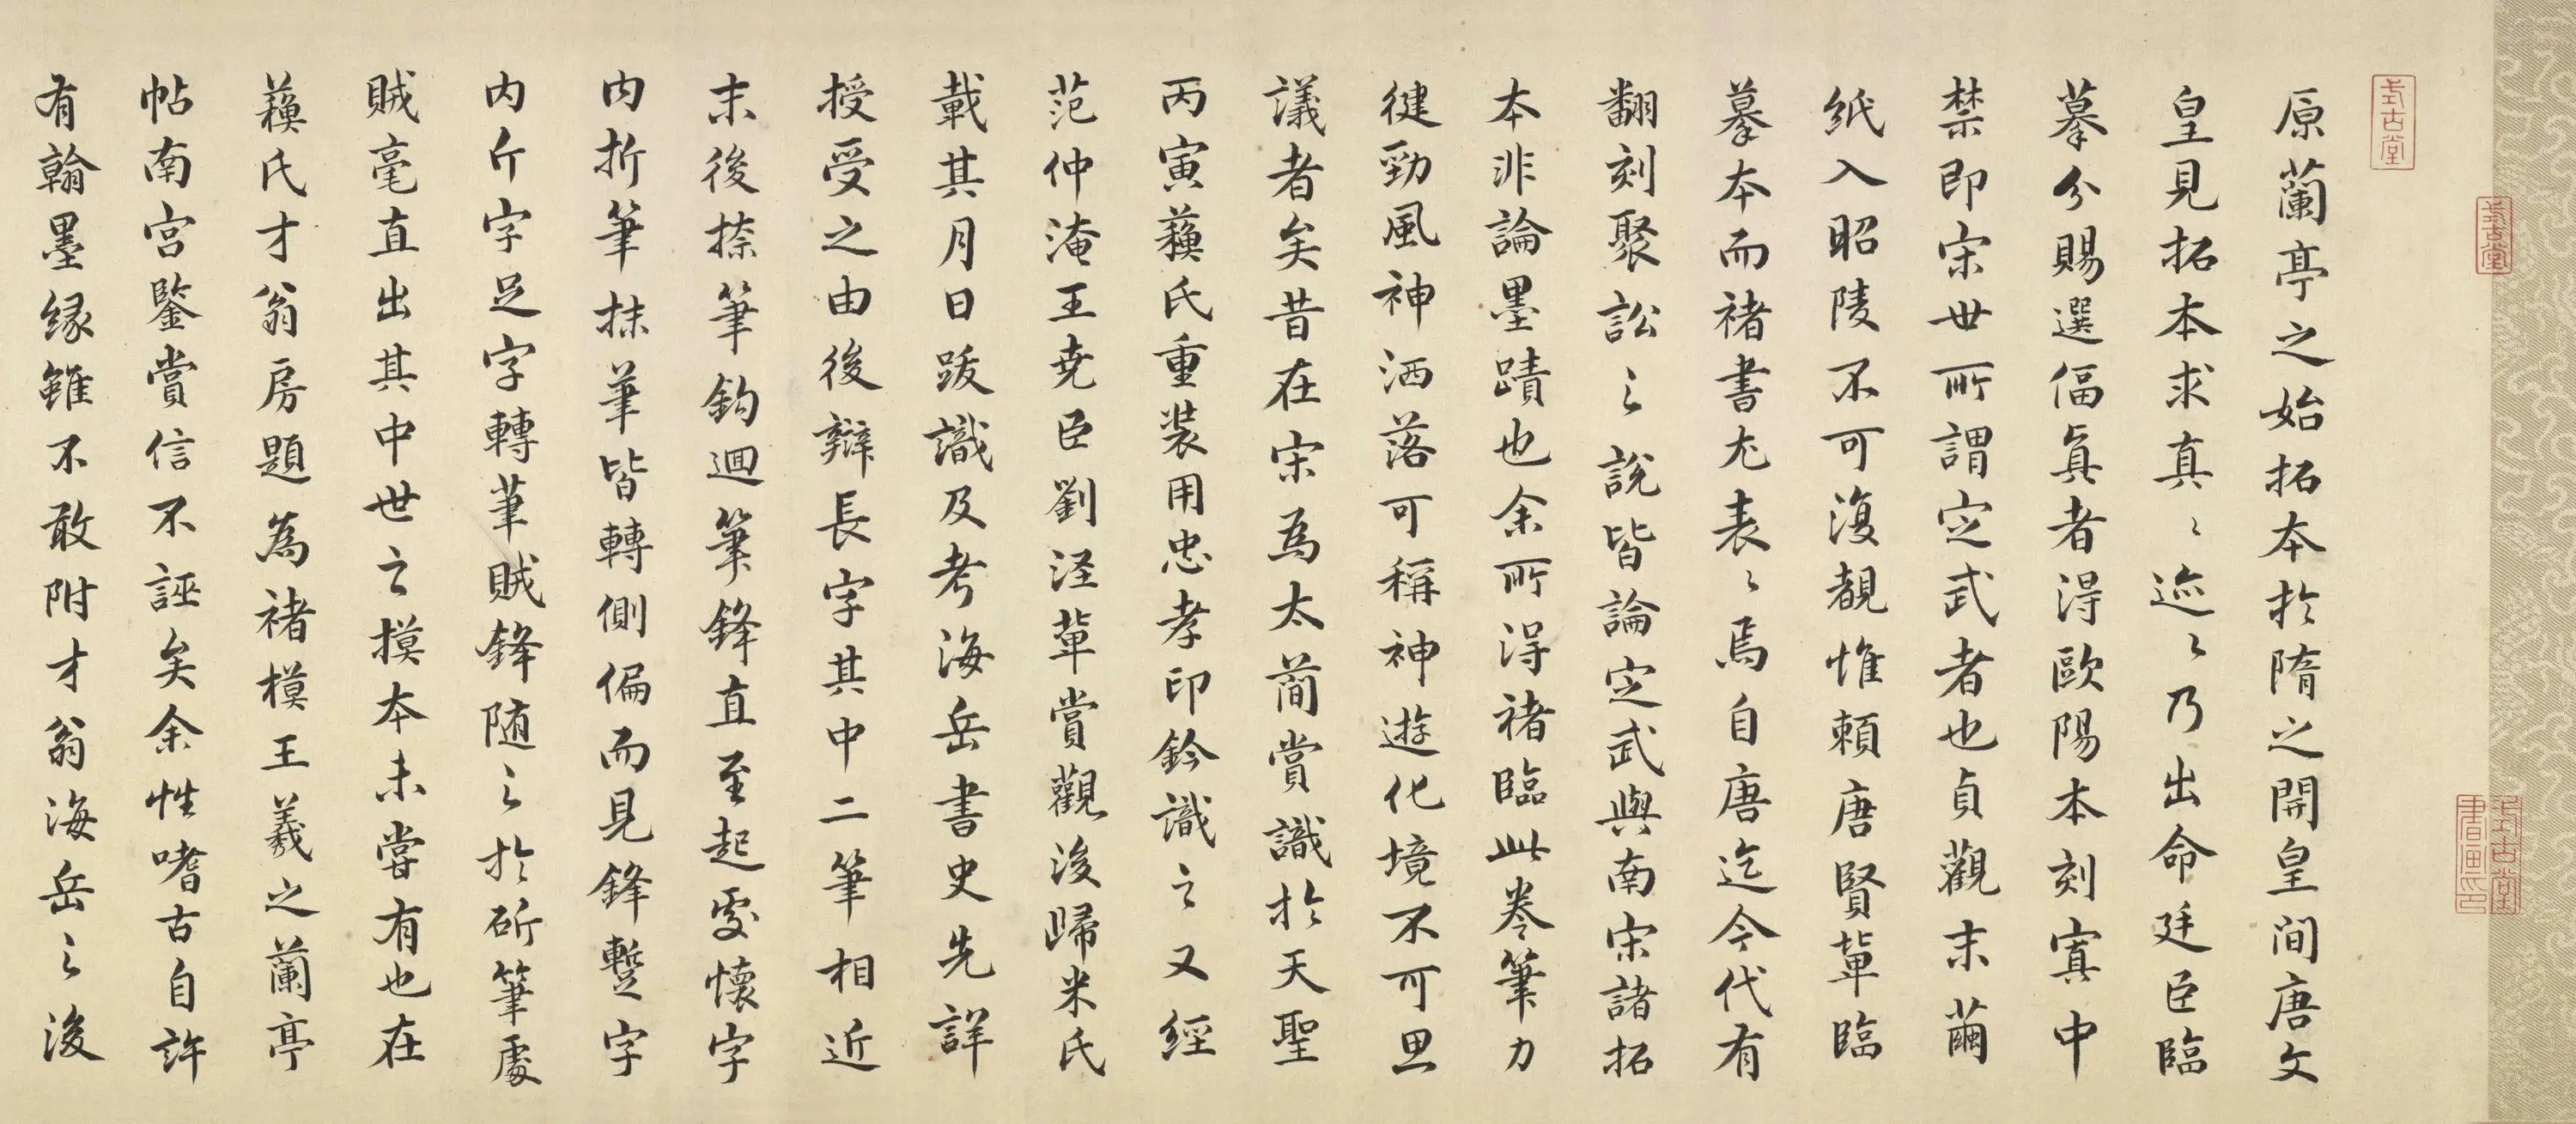 式古堂
式古堂
式古堂書畫印
原蘭亭之始拓本於隋之開皇間唐文
皇見拓本求真〻迹〻乃出命廷臣臨
摹分賜選偪真者得歐陽本刻寘中
禁即宋世所謂定武者也貞觀末繭
紙入昭陵不可復覩惟賴唐賢輩臨
摹本而褚書尤表〻焉自唐迄今代有
翻刻聚訟之說皆論定武與南宋諸拓
本非論墨蹟也余所得褚臨此卷筆力
徤勁風神洒落可稱神遊化境不可思
議者矣昔在宋為太簡賞識於天聖
丙寅蘓氏重裝用忠孝印鈐識之又經
范仲淹王堯臣劉涇輩賞觀後歸米氏
載其月日跋識及考海岳書史先詳
授受之由後辯長字其中二筆相近
末後捺筆鈎迴筆鋒直至起處懷字
內折筆抹筆皆轉側偏而見鋒蹔字
內斤字足字轉筆賊鋒隨之於斫筆處
賊毫直出其中世之摸本未嘗有也在
蘓氏才翁房題為褚模王羲之蘭亭
帖南宮鑒賞信不誣矣余性嗜古自許
有翰墨緣雖不敢附才翁海岳之後